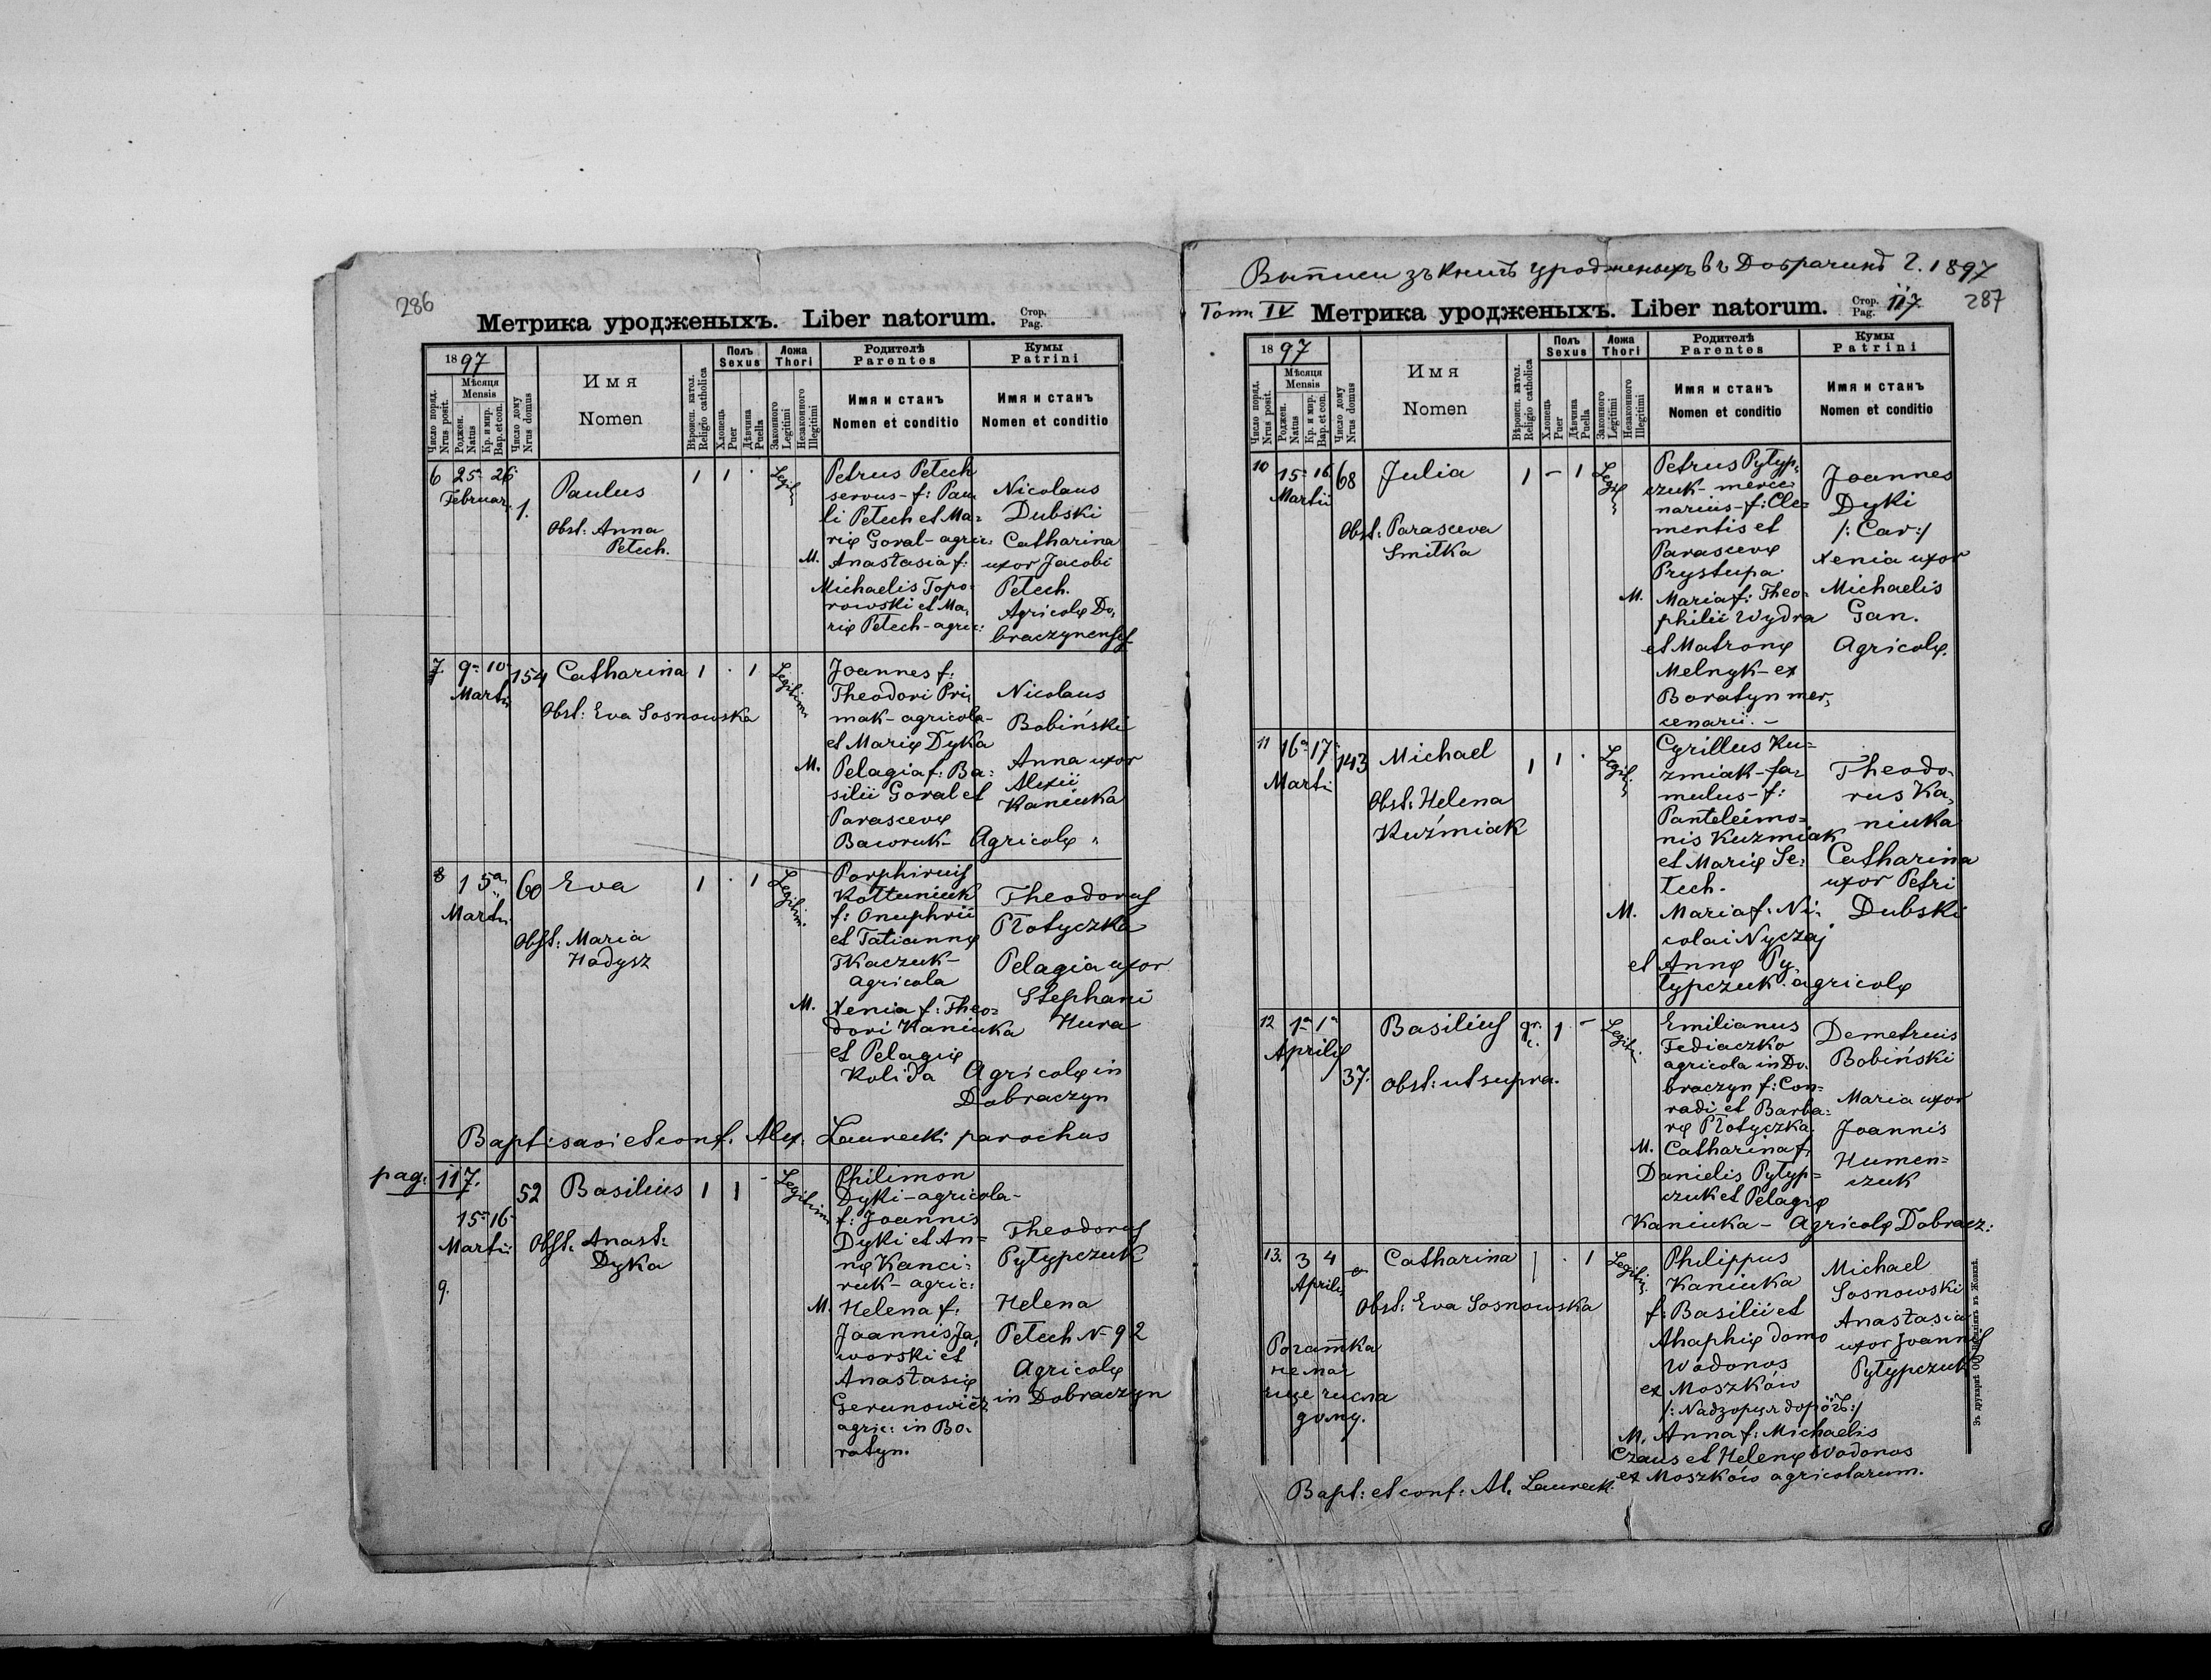 286
Метрика уродженыхъ. Liber natorum.
Стор.
Pag.
1897
Число поряд.
Nrus posit.
Мѣсяця
Mensis
Роджен.
Natus
Кр. и мир.
Bap. et con.
Число дому
Nrus domus
Имя
Nomen
Вѣроисп. катол.
Religio catholica
Полъ
Sexus
Хлопець
Puer
Дѣвчина
Puella
Ложа
Thori
Законного
Legitimi
Незаконного
Illegitimi
Родителѣ
Parentes
Имя и станъ
Nomen et conditio
Кумы
Patrini
Имя и станъ
Nomen et conditio
6 25 - 26
Februar.
1.
Paulus
Obst: Anna
Petech.
1 1 ·
Legiti
Petrus Petech
servus - f: Pau
li Petech et Ma=
rię Goral - agric:
M. Anastasia f:
Michaelis Topo-
rowski et Ma,
rię Petech - agric:
Nicolaus
Dubski
Catharina
uxor Jacobi
Petech.
Agricolę Do,
braczynenses
7 9 - 10
Martii
154
Catharina
Obst: Eva Sosnowska
1 · 1
Legitimi
Joannes f:
Theodori Pri,
mak - agricola -
et Marię Dyka
M. Pelagia f: Ba=
silii Goral et
Parascevę
Baworuk -
Nicolaus
Bobiński
Anna uxor
Alexii
Kaniuka
Agricolę
8 1 5a
Martii
60
Eva
Obst: Maria
Hadysz
1 · 1
Legitimi
Porphirius
Kottuniuk
f: Onuphrii
et Tatiannę
Tkaczuk -
agricola
M. Xenia f: Theo=
dori Kaniuka
et Pelagię
Kolida
Theodorus
Płotyczka
Pelagia uxor
Stephani
Hura
Agricolę in
Dobraczyn
Baptisavi et conf. Alex. Laurecki parochus
pag: 117.
15 - 16 -
Martii
9.
52
Basilius
Obst: Anast:
Dyka
1 1 -
Legitimi
Philimon
Dyki - agricola -
f: Joannis
Dyki et An=
nę Kanci=
ruk - agric:
M. Helena f:
Joannis Ja,
worski et
Anastasię
Gerunowicz
agric: in Bo-
ratyn.
Theodorus
Pytypczuk
Helena
Petech N 92
Agricolę
in Dobraczyn
Выписи зъ книгъ уродженыхъ въ Добрачинѣ г. 1897
Том. IV Метрика уродженыхъ. Liber natorum.
Стор.
Pag. 117
287
1897
Число поряд.
Nrus posit.
Мѣсяця
Mensis
Роджен.
Natus
Кр. и мир.
Bap. et con.
Число дому
Nrus domus
Имя
Nomen
Вѣроисп. катол.
Religio catholica
Полъ
Sexus
Хлопець
Puer
Дѣвчина
Puella
Ложа
Thori
Законного
Legitimi
Незаконного
Illegitimi
Родителѣ
Parentes
Имя и станъ
Nomen et conditio
Кумы
Patrini
Имя и станъ
Nomen et conditio
10 15 - 16
Martii
68
Julia
Obst: Parasceva
Smitka
1 - 1
Legit
Petrus Pytyp,
czuk - merce
narius - f: Cle=
mentis et
Parascevę
Prystupa.
M. Maria f: Theo-
philii Wydra
et Matronę
Melnyk - ex
Boratyn mer,
cenarii. -
Joannes
Dyki
/: Car :/
Xenia uxor
Michaelis
Gan.
Agricolę.
11 16 - 17
Martii
143
Michael
Obst: Helena
Kuźmiak
1 1 ·
Legiti
Cyrillus Ku=
zmiak - fa=
mulus - f:
Panteleimo=
nis Kuzmiak
et Marię Se=
tech.
M. Maria f: Ni=
colai Nyczaj
et Annę Py,
typczuk. agricolę
Theodo-
rus Ka,
niuka
Catharina
uxor Petri
Dubski
12 1a 1a
Aprilis
37.
Basilius
Obst: ut supra.
gr. c. 1 -
Legiti
Emilianus
Fediaczko
agricola in Do.
braczyn f: Con=
radi et Barba=
rę Płotyczka.
M. Catharina f,
Danielis Pytyp=
czuk et Pelagię
Kaniuka - Agricolę Dobracz:
Demetrius
Bobiński
Maria uxor
Joannis
Humen=
czuk
13. 3 4
Aprilis
Catharina
Obst: Eva Sosnowska
Рогатка
не має
ще числа
дому.
1 · 1
Legiti
Philippus
Kaniuka
f: Basilii et
Ahaphię domo
Wodonos
ex Moszków
/: Надзорця дорогъ :/
M. Anna f: Michaelis
Czaus et Helenę Wodonos
ex Moszków agricolarum.
Michael
Sosnowski
Anastasia
uxor Joannis
Pytypczuk
Bapt: et conf: Al. Laureck.